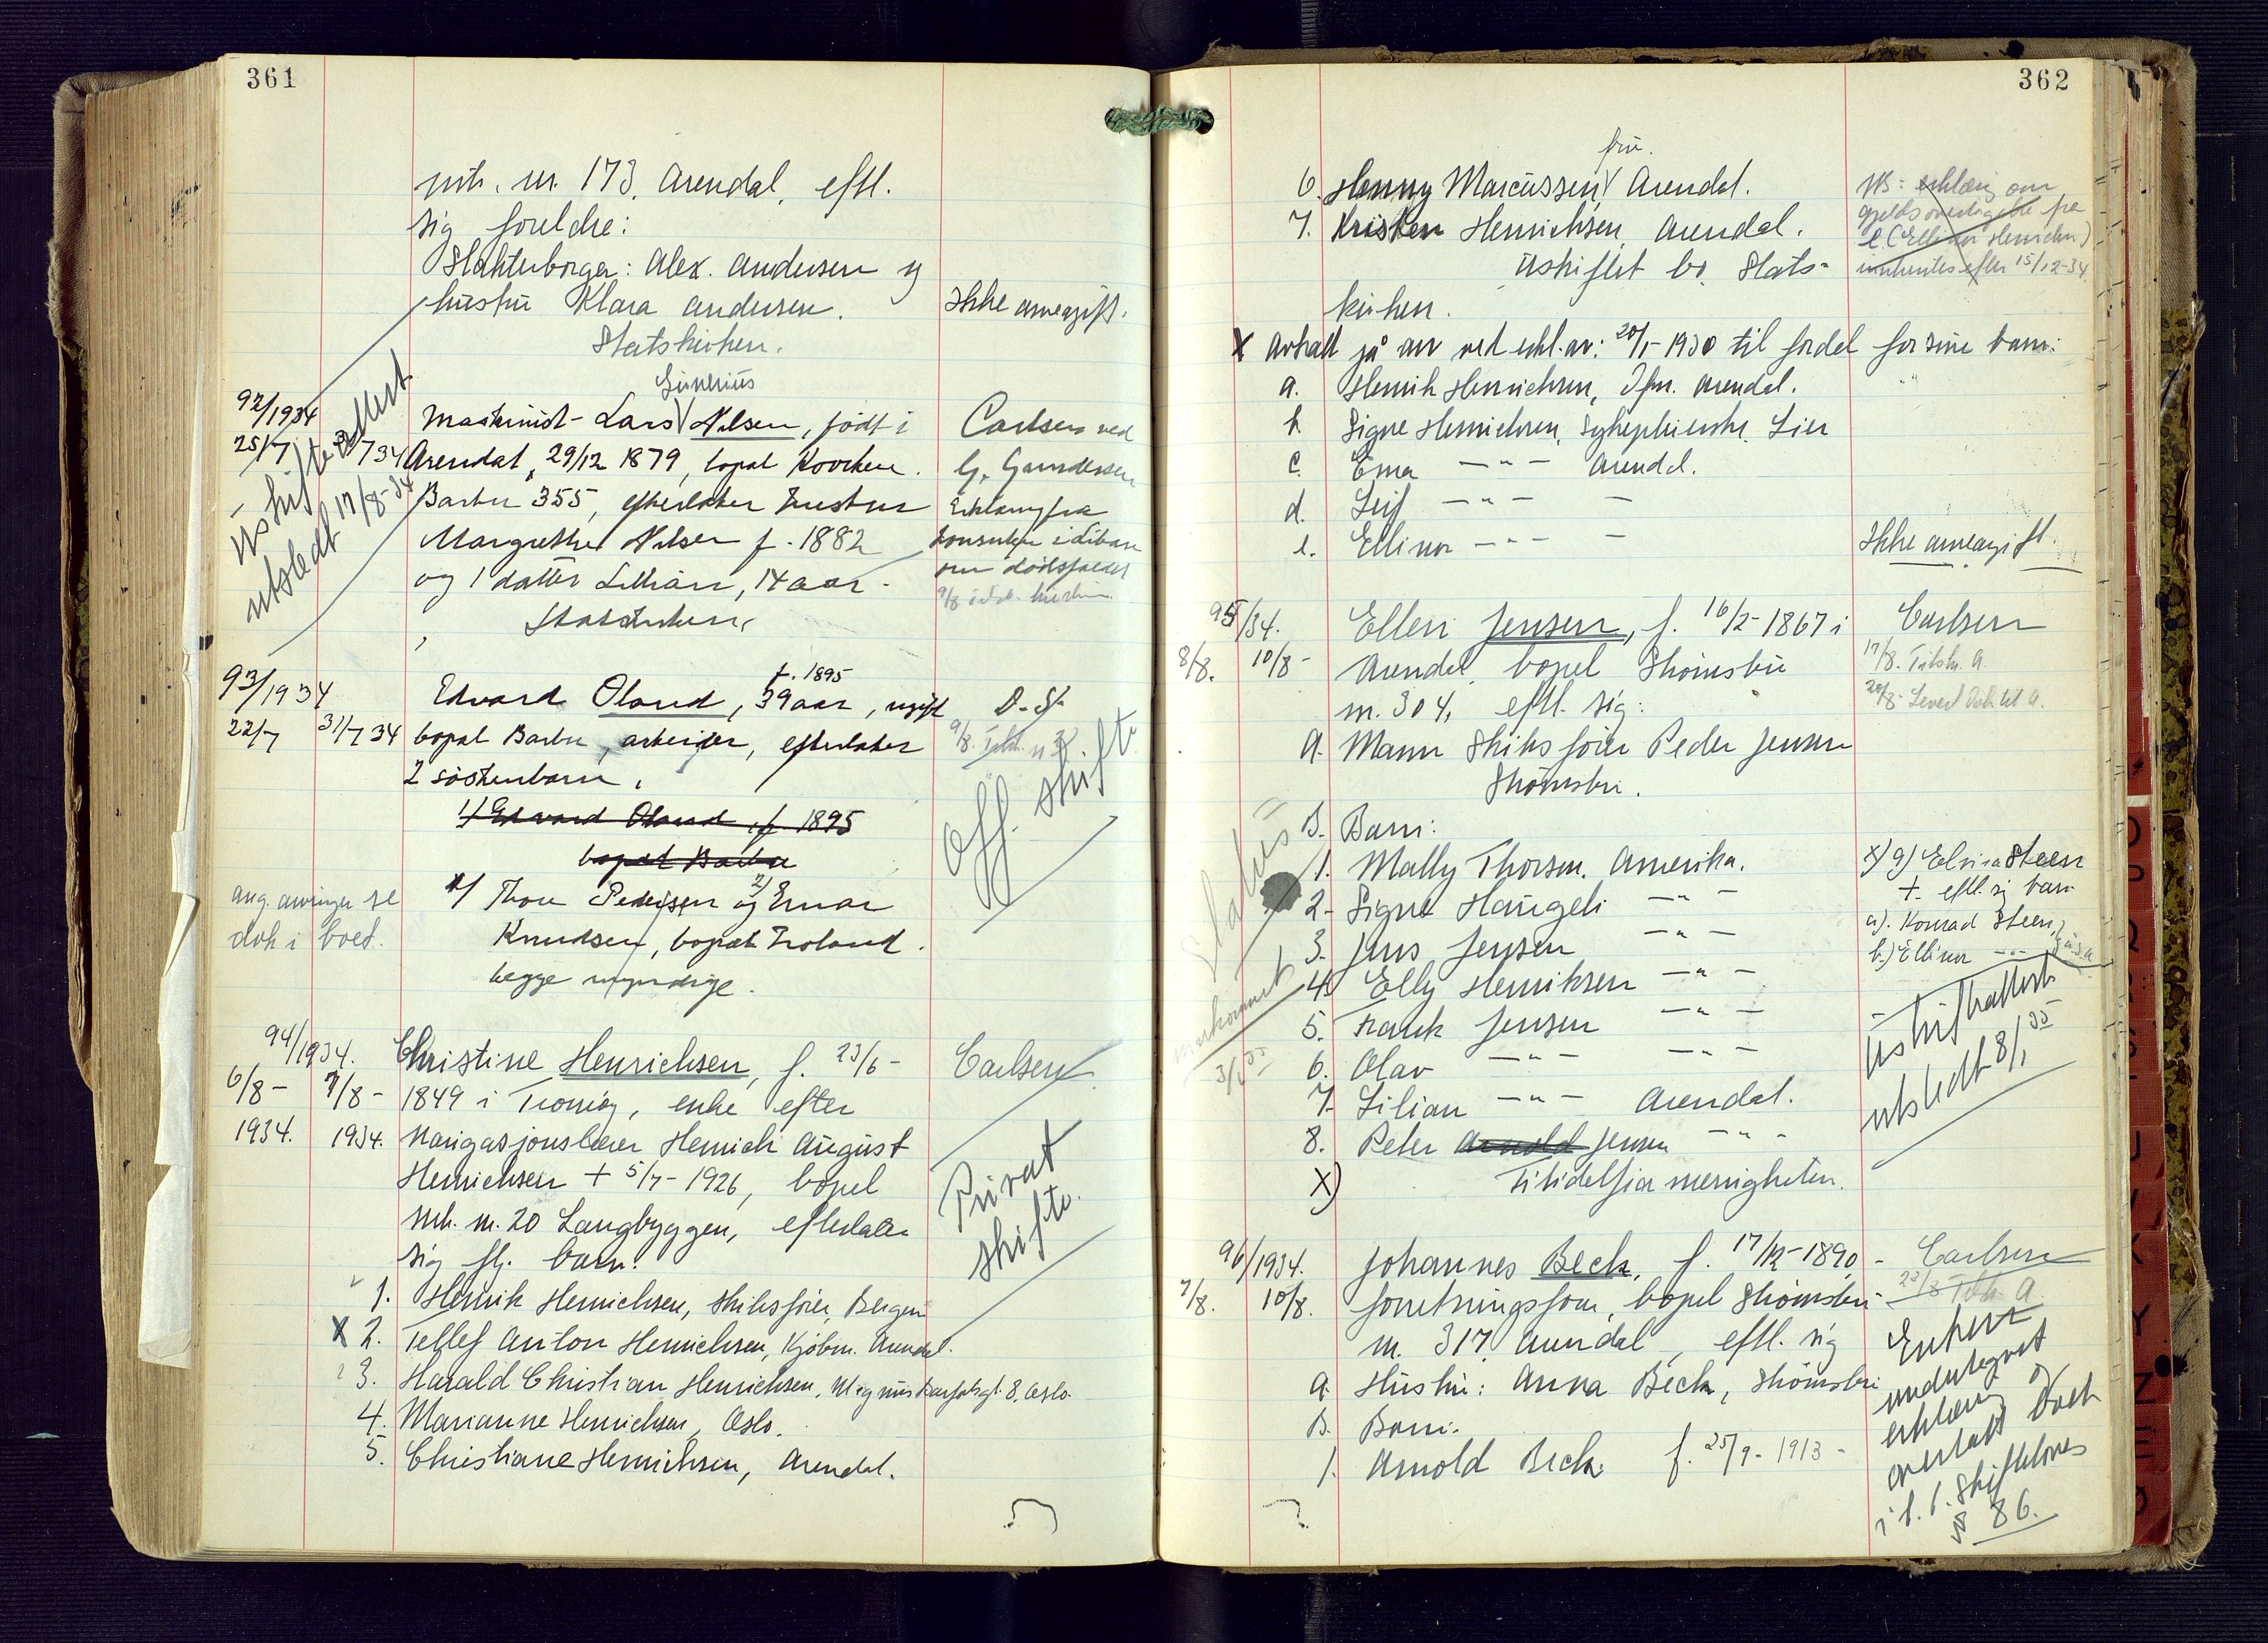 361
mtr. nr. 173, Arendal, eftl.
sig foreldre:
Slakterborger: Alex. Andersen og
hustru Klara Andersen. Ikke arveavgift.
Statskirken.
Severinus
92/1934 Maskinist Lars Nilsen, født i Carlsen ved
25/7 /7 34 Arendal, 29/12 1879, bopæl G. Gundersen
Barbu 355, efterlater hustru Erklæring fra
Margrethe Nilsen f. 1882 konsulen i
og 1 datter Lillian, 14 aar. om dødsfaldet
Statskirken.
Uskifteattest
utstedt 17/8-34
f. 1895
93/1934 Edvard Oland, 39 aar, ugift D.S.
22/7 31/7 34 bopæl Barbu, arbeider, efterlater
2 søskenbarn,
1/ Edvard Oland, f. 1895
bopæl Barbu
Off. skifte
ang. arvinger se 1/ Thore Pedersen og 2/ Einar
dok i boet. Knudsen, bopæl Froland.
begge umyndige.
94/1934. Christine Henrichsen, f. 23/6 - Carlsen
6/8 - 7/8 - 1849 i Tromøy, enke efter
1934. 1934. Navigasjonslærer Henrich August
Henrichsen + 5/7 - 1926, bopæl
mtr. nr. 20 Langbryggen, efterlater
sig flg. barn:
Privat
skifte.
1. Henrik Henrichsen, skibsfører, Bergen
X 2. Tellef Anton Henrichsen, Kjøbm. Arendal.
3. Harald Christian Henrichsen, Magnus Barfotsgt. 8, Oslo.
4. Marianne Henrichsen, Oslo.
5. Christiane Henrichsen, Arendal.
362
fru.
6. Henny Marcussen, Arendal. NB: erklæring om
7. Kristen Henrichsen, Arendal. gjeldsovertagelse fra
Uskiftet bo. Stats- e. (Ellinor Henrichsen)
kirken. innhentes efter 15/12-34
X Avkall på arv ved erkl. av: 20/1-1930 til fordel for sine barn:
a. Henrik Henrichsen, Jfm. Arendal.
b. Signe Henrichsen, Sykepleierske, Lier
c. Erna -"- Arendal.
d. Leif -"- -
e. Ellinor -"- - Ikke arveavgift.
95/34. Ellen Jensen, f. 16/2-1867 i Carlsen
8/8. 10/8 - Arendal, bopel Strømsbu 17/8. Tilskr. A.
nr. 304, eftl. sig: 20/8 - Levert Dok til A.
A. Mann Skibsfører Peder Jensen
Strømsbu.
B. Barn:
1. Mally Thorsen. Amerika. x) 9) Elvira Steen
2. Signe Haugeli -"- + eftl. sig barn
3. Jens Jensen -"- a). Konrad Steen,
4. Elly Henriksen -"- b.) Ellinor -"-
5. Frank Jensen -"-
6. Olav -"- -"-
7. Lilian -"- Arendal.
8. Peter Arnold Jensen -"-
X) Filidelfia menigheten.
Uskifteattest
utstedt 8/1 35
96/1934. Johannes Beck, f. 17/12-1890 - Carlsen
7/8. 10/8. forretningsfører, bopel Strømsbu
nr. 317 Arendal, eftl. sig
A. Hustru: Anna Beck, Strømsbu
B. Barn:
1. Arnold Beck f. 25/9-1913 -
Enken
undertegnet
erklæring og
overtatt boet
i h. t. Skiftelovens
§ 86.